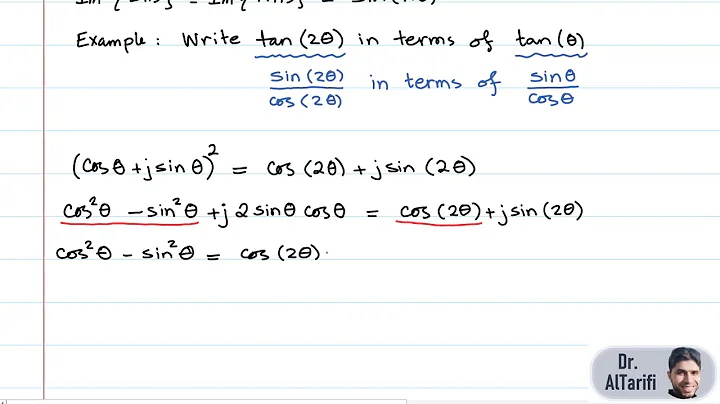 Example: Write tan(2θ) in terms of tan(θ)
sin(2θ)/cos(2θ) in terms of sinθ/cosθ
(cosθ + j sinθ)² = cos(2θ) + j sin(2θ)
cos²θ - sin²θ + j 2 sinθ cosθ = cos(2θ) + j sin(2θ)
cos²θ - sin²θ = cos(2θ)
Dr.
AlTarifi